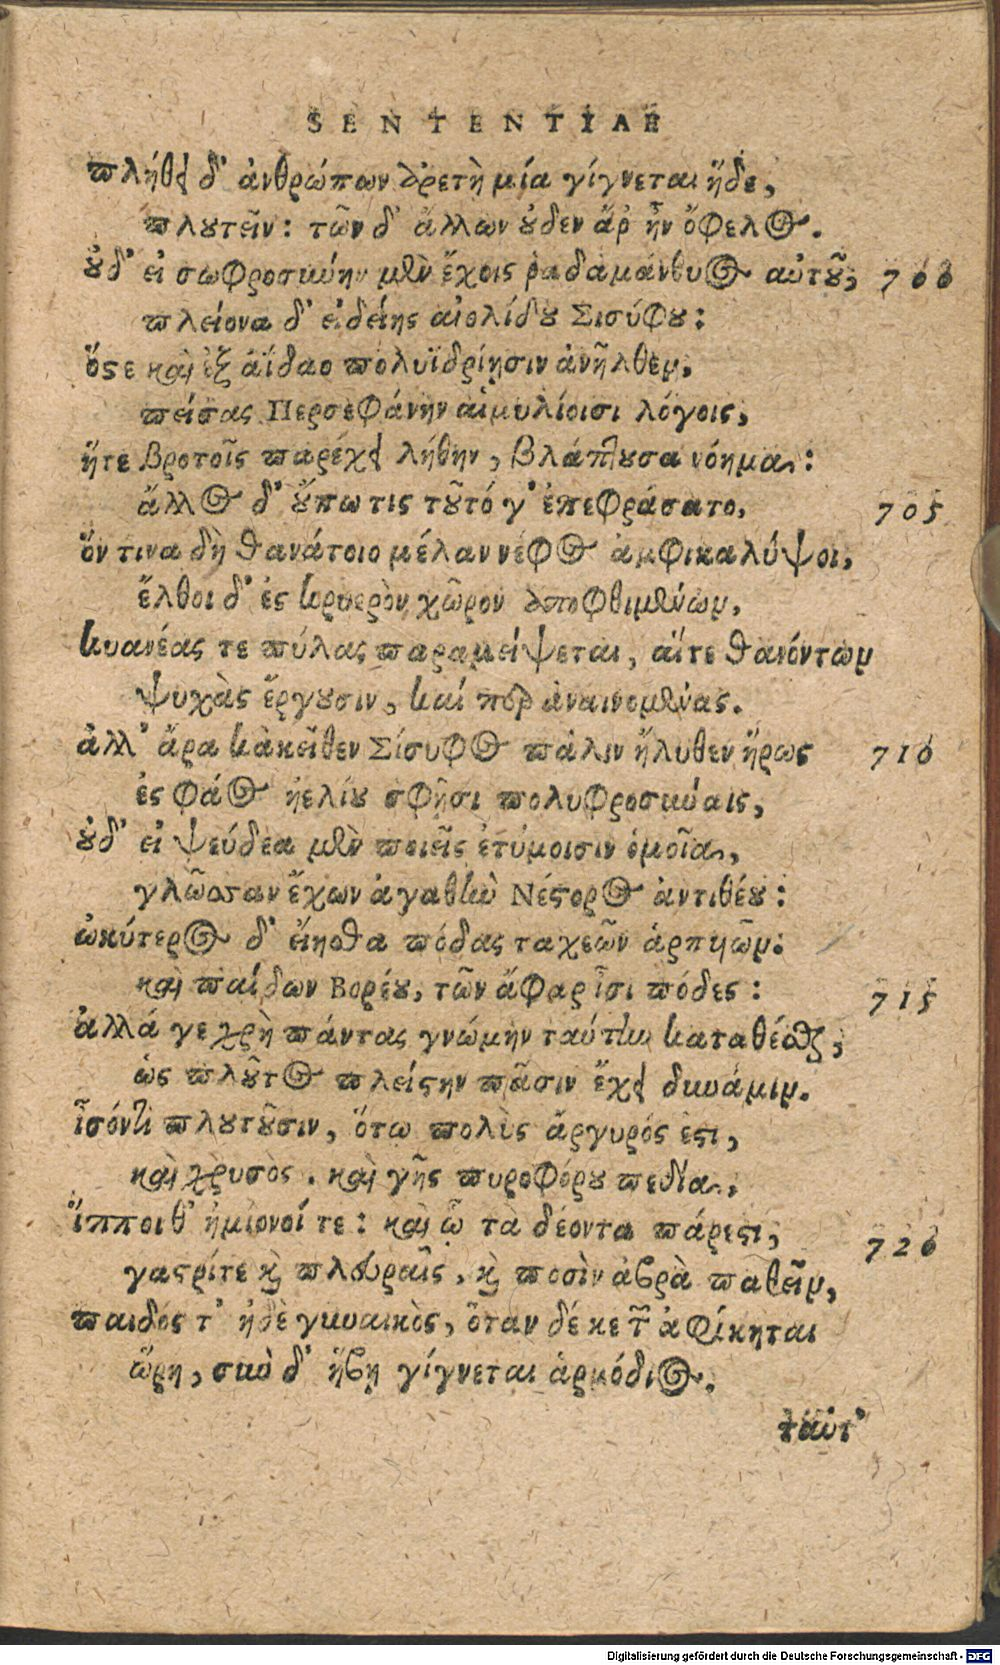 SENTENTIAE
πλήθει δ' ἀνθρώπων ἀρετὴ μία γίγνεται ἥδε,
πλουτεῖν: τῶν δ' ἄλλων οὐδεν ἄρ ἦν ὄφελος.
οὐδ' εἰ σωφροσύνην μὲν ἔχοις ῥαδαμάνθυος αὐτοῦ, 700
πλείονα δ' εἰδείης αἰολίδου Σισύφου:
ὅστε καὶ ἐξ ἀΐδαο πολυϊδρίησιν ἀνῆλθεν,
πείσας Περσεφάνην αἱμυλίοισι λόγοις,
ἥτε βροτοῖς παρέχει λήθην, βλάπτουσα νόημα:
ἄλλος δ' οὔπω τις τοῦτό γ' ἐπεφράσατο, 705
ὅν τινα δὴ θανάτοιο μέλαν νέφος ἀμφικαλύψοι,
ἔλθοι δ' ἐς κρυερὸν χῶρον ἀποφθιμένων,
κυανέας τε πύλας παραμείψεται, αἵτε θανόντων
ψυχὰς ἔργουσιν, καί περ ἀναινομένας.
ἀλλ' ἄρα κἀκεῖθεν Σίσυφος πάλιν ἤλυθεν ἥρως 710
ἐς φάος ἠελίου σφῇσι πολυφροσύναις,
οὐδ' εἰ ψεύδεα μὲν ποιεῖς ἐτύμοισιν ὁμοῖα,
γλῶσσαν ἔχων ἀγαθὴν Νέστορος ἀντιθέου:
ὠκύτερος δ' εἴησθα πόδας ταχεῶν ἁρπυῶν:
καὶ παίδων Βορέου, τῶν ἄφαρ εἶσι πόδες: 715
ἀλλά γε χρὴ πάντας γνώμην ταύτην καταθέσθαι,
ὡς πλοῦτος πλείστην πᾶσιν ἔχει δύναμιν.
ἶσόν τι πλουτοῦσιν, ὅτω πολὺς ἄργυρός ἐστι,
καὶ χρυσὸς, καὶ γῆς πυροφόρου πεδία,
ἵπποιθ' ἡμιονοί τε: καὶ ᾧ τὰ δέοντα πάρεστι, 720
γαστρίτε καὶ πλευραῖς, καὶ ποσὶν ἁβρὰ παθεῖν,
παιδός τ' ἠδὲ γυναικὸς, ὅταν δέ κε τῶν ἀφίκηται
ὥρη, σὺν δ' ἥβη γίγνεται ἁρμόδιος.
ταῦτ'
Digitalisierung gefördert durch die Deutsche Forschungsgemeinschaft - DFG